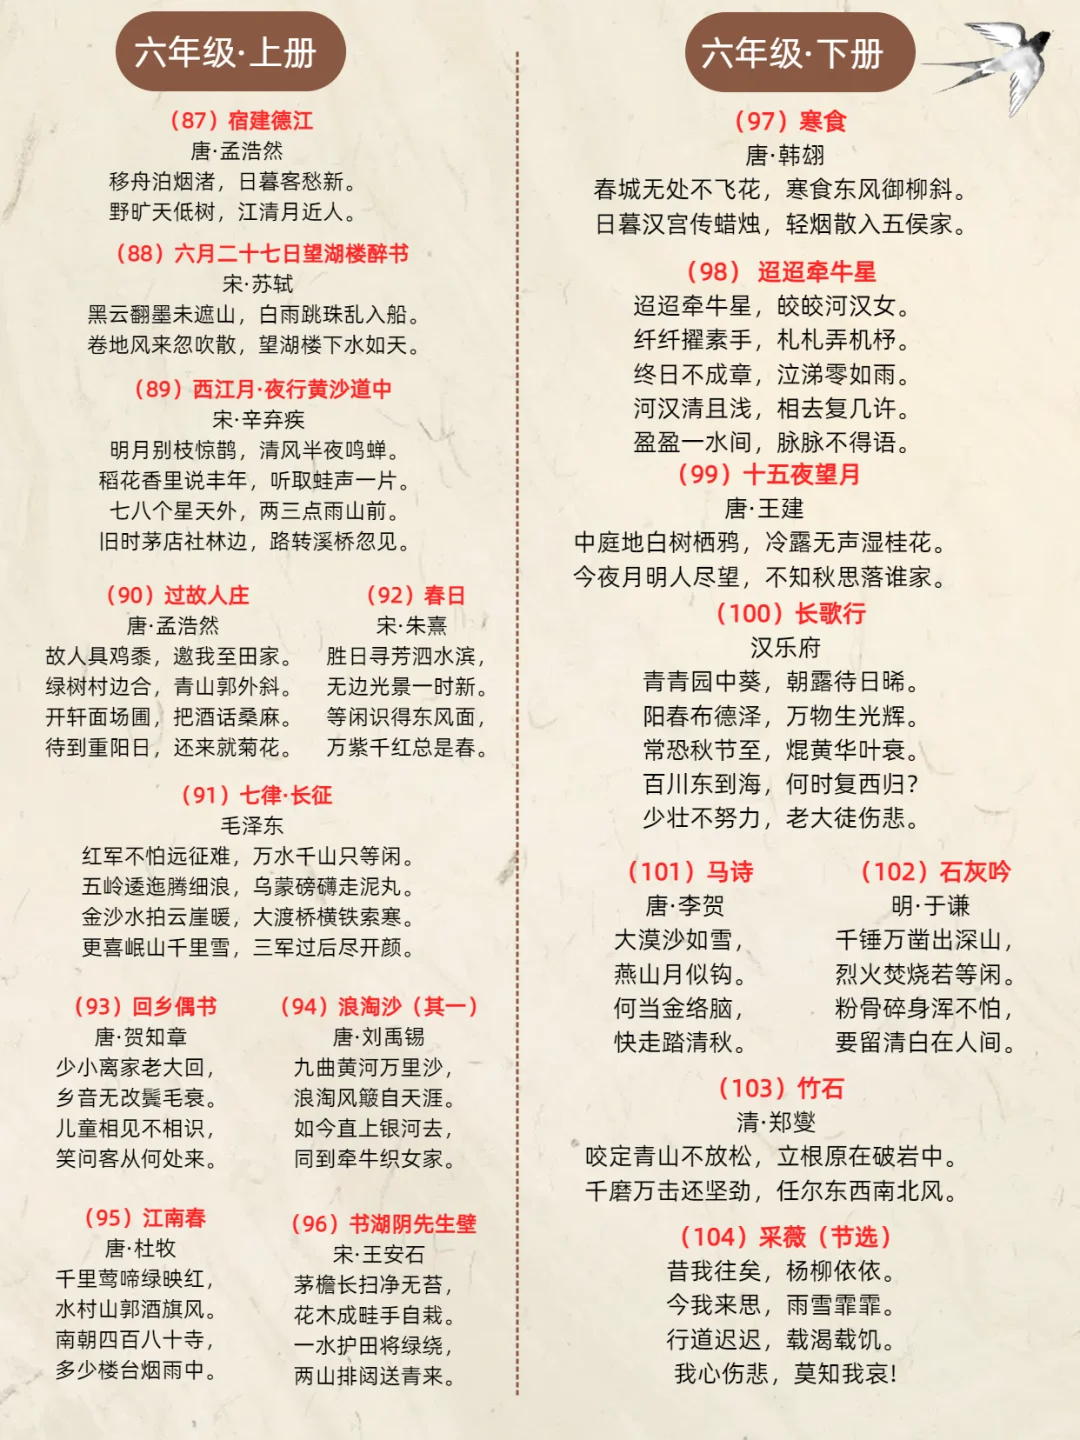 六年级·上册
（87）宿建德江
唐·孟浩然
移舟泊烟渚，日暮客愁新。
野旷天低树，江清月近人。
（88）六月二十七日望湖楼醉书
宋·苏轼
黑云翻墨未遮山，白雨跳珠乱入船。
卷地风来忽吹散，望湖楼下水如天。
（89）西江月·夜行黄沙道中
宋·辛弃疾
明月别枝惊鹊，清风半夜鸣蝉。
稻花香里说丰年，听取蛙声一片。
七八个星天外，两三点雨山前。
旧时茅店社林边，路转溪桥忽见。
（90）过故人庄
唐·孟浩然
故人具鸡黍，邀我至田家。
绿树村边合，青山郭外斜。
开轩面场圃，把酒话桑麻。
待到重阳日，还来就菊花。
（92）春日
宋·朱熹
胜日寻芳泗水滨，
无边光景一时新。
等闲识得东风面，
万紫千红总是春。
（91）七律·长征
毛泽东
红军不怕远征难，万水千山只等闲。
五岭逶迤腾细浪，乌蒙磅礴走泥丸。
金沙水拍云崖暖，大渡桥横铁索寒。
更喜岷山千里雪，三军过后尽开颜。
（93）回乡偶书
唐·贺知章
少小离家老大回，
乡音无改鬓毛衰。
儿童相见不相识，
笑问客从何处来。
（94）浪淘沙（其一）
唐·刘禹锡
九曲黄河万里沙，
浪淘风簸自天涯。
如今直上银河去，
同到牵牛织女家。
（95）江南春
唐·杜牧
千里莺啼绿映红，
水村山郭酒旗风。
南朝四百八十寺，
多少楼台烟雨中。
（96）书湖阴先生壁
宋·王安石
茅檐长扫净无苔，
花木成畦手自栽。
一水护田将绿绕，
两山排闼送青来。
六年级·下册
（97）寒食
唐·韩翃
春城无处不飞花，寒食东风御柳斜。
日暮汉宫传蜡烛，轻烟散入五侯家。
（98） 迢迢牵牛星
迢迢牵牛星，皎皎河汉女。
纤纤擢素手，札札弄机杼。
终日不成章，泣涕零如雨。
河汉清且浅，相去复几许。
盈盈一水间，脉脉不得语。
（99）十五夜望月
唐·王建
中庭地白树栖鸦，冷露无声湿桂花。
今夜月明人尽望，不知秋思落谁家。
（100）长歌行
汉乐府
青青园中葵，朝露待日晞。
阳春布德泽，万物生光辉。
常恐秋节至，焜黄华叶衰。
百川东到海，何时复西归？
少壮不努力，老大徒伤悲。
（101）马诗
唐·李贺
大漠沙如雪，
燕山月似钩。
何当金络脑，
快走踏清秋。
（102）石灰吟
明·于谦
千锤万凿出深山，
烈火焚烧若等闲。
粉骨碎身浑不怕，
要留清白在人间。
（103）竹石
清·郑燮
咬定青山不放松，立根原在破岩中。
千磨万击还坚劲，任尔东西南北风。
（104）采薇（节选）
昔我往矣，杨柳依依。
今我来思，雨雪霏霏。
行道迟迟，载渴载饥。
我心伤悲，莫知我哀！